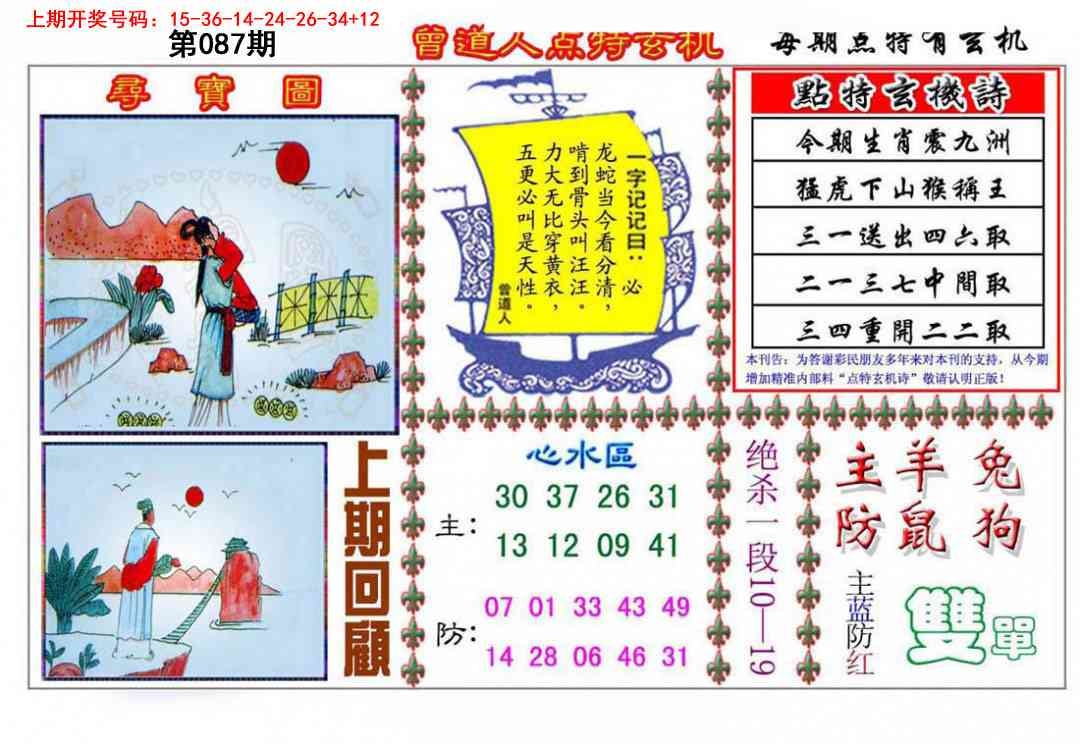 上期开奖号码：15-36-14-24-26-34+12
第087期
曾道人点特玄机
每期点特有玄机
尋寶圖
一字记记曰：必
龙蛇当今看分清，
啃到骨头叫汪汪。
力大无比穿黄衣，
五更必叫是天性。
曾道人
點特玄機詩
今期生肖震九洲
猛虎下山猴稱王
三一送出四六取
二一三七中間取
三四重開二二取
本刊告：为答谢彩民朋友多年来对本刊的支持，从今期
增加精准内部料“点特玄机诗”敬请认明正版！
上期回顧
心水區
主：
30 37 26 31
13 12 09 41
防：
07 01 33 43 49
14 28 06 46 31
绝杀一段10—19
主羊兔
防鼠狗
主蓝防红
雙單